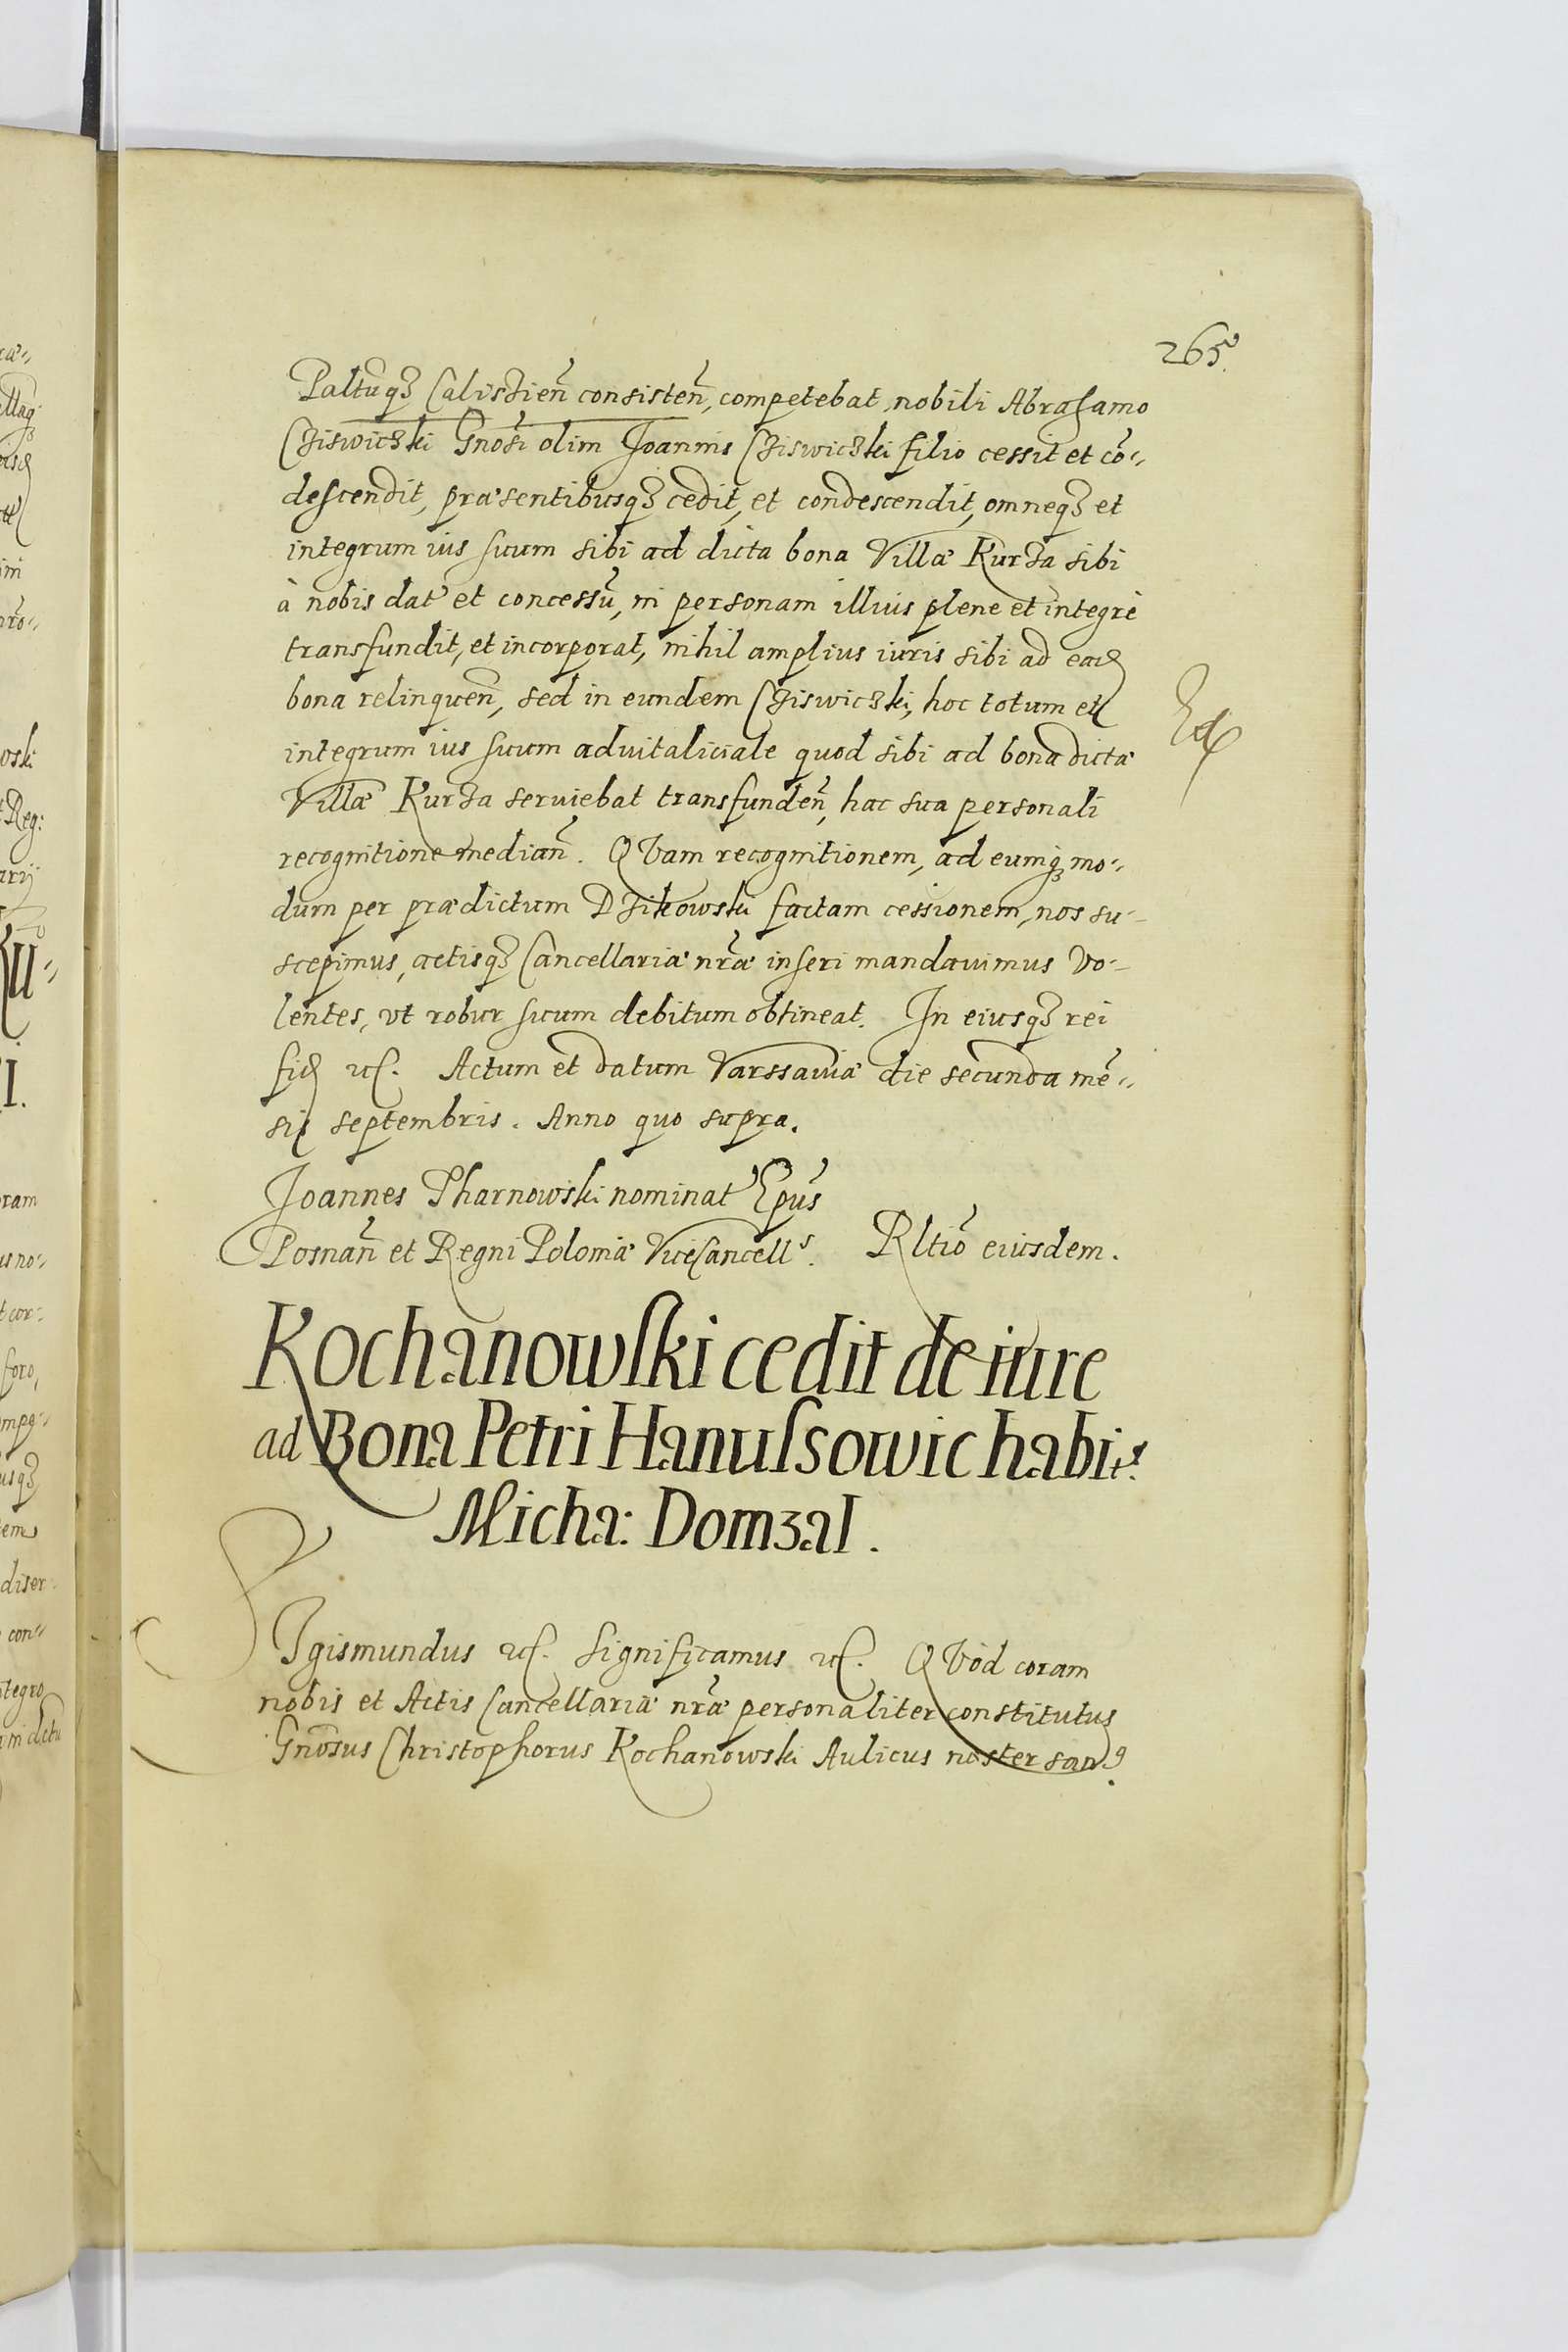 265.
Paltuq₃ Calisʒien̄ consisten̄, competebat, nobili Abrahamo
Cʒiswicʒki Gnosi olim Joannis Cʒiswicʒki filio cessit et cō⸗
descendit, præsentibusq₃ cedit, et condescendit, omneq₃ et
integrum ius suum sibi ad dicta bona Villæ Kurʒa sibi
à nobis dat' et concessū, in personam illius plene et integrè
transfundit, et incorporat, nihil amplius iuris sibi ad ead
bona relinquen̄, sed in eundem Cʒiswicʒki, hoc totum et
integrum ius suum aduitaliciale quod sibi ad bona dictæ
Villæ Kurʒa seruiebat transfunden̄, hac sua personali
recognitione median̄. QVam recognitionem, ad eumq₃ mo⸗
dum per prædictum Dʒikowski factam cessionem, nos su⸗
scepimus, actisq₃ Cancellariæ nr̄æ inseri mandauimus Vo⸗
lentes, vt robur suum debitum obtineat. In eiusq₃ rei
fid etc. Actum et datum Varssauiæ die secunda mē⸗
sis septembris. Anno quo supra.
Joannes Tharnowski nominat' Epus
Posnan̄ et Regni Poloniæ ViceCancells. Rltio eiusdem.
Kochanowski cedit de iure
ad Bona Petri Hanussowic habit.
Micha: Domʒal.
SIgismundus etc. Significamus etc. QVod coram
nobis et Actis Cancellariæ nr̄æ personaliter constitutus
Gnosus Christophorus Kochanowski Aulicus noster san9